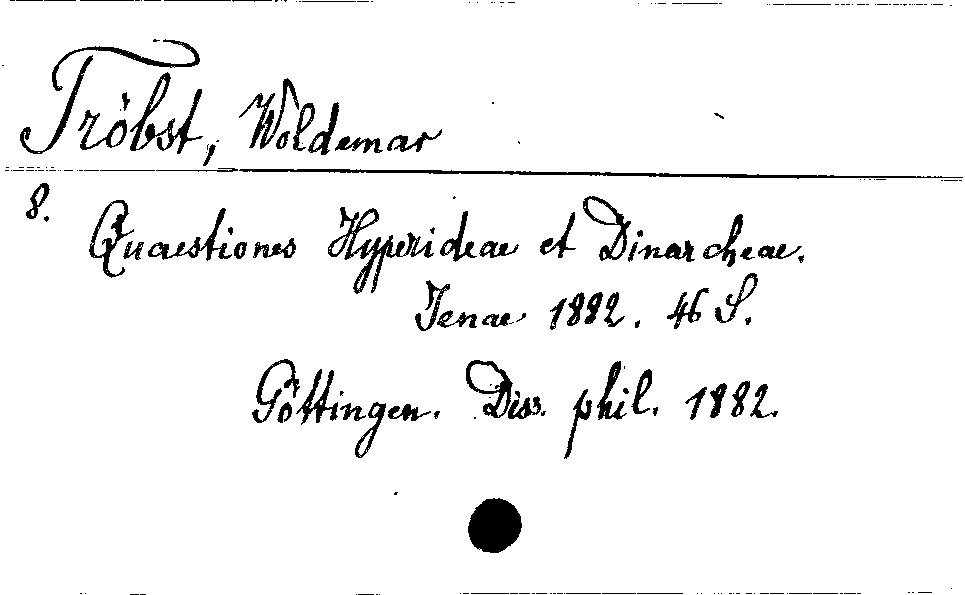 Tröbst, Woldemar
8.
Quaestiones Hyperideae et Dinarcheae.
Jenae 1882. 46 S.
Göttingen. Diss. phil. 1882.